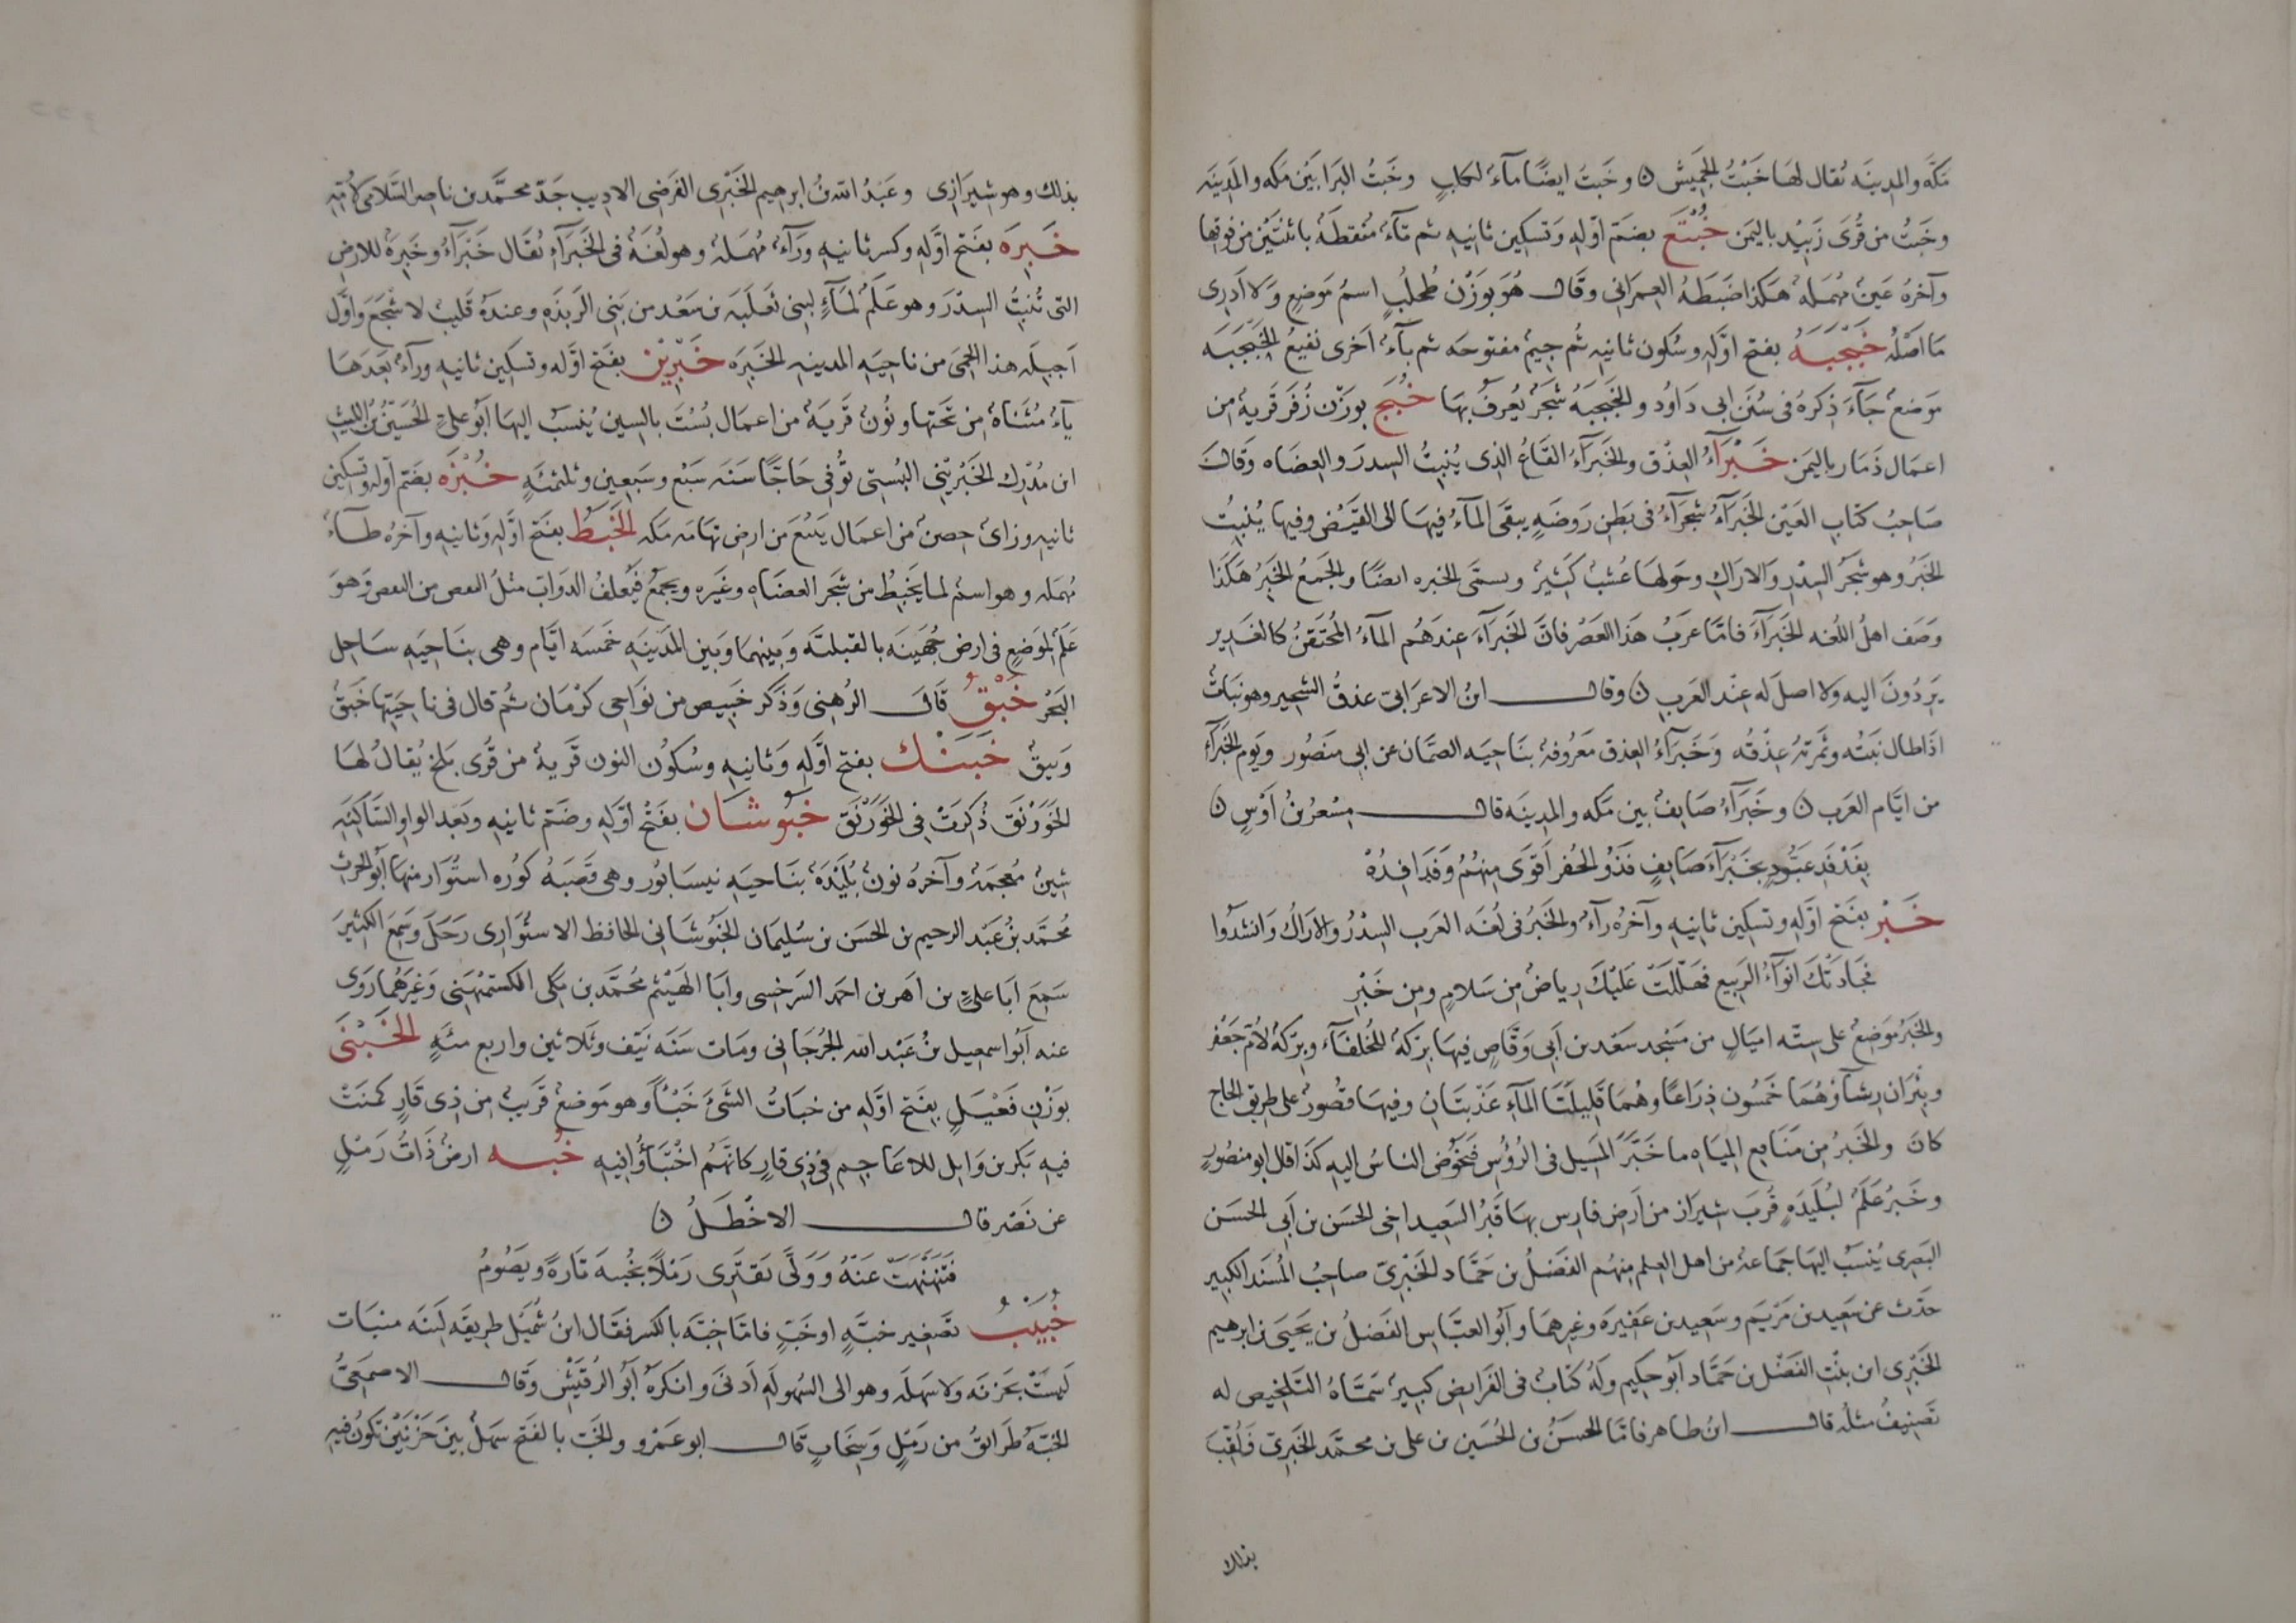 مكة والمدينه نقال لها خَبْتُ الجَميش ن وخبتُ ايضًا مآءٌ لكلبٍ وخبتُ البَزا بَيْن مكه والمدِينَه
وخبتُ من قُرَى زَبِيْد باليمَن خُبْتَع بضم اوّله وَتسكين ثانيهِ ثم تآءٌ منقطةٌ باثنتَين من فوقها
وآخرهُ عَينٌ مُهمَلهٌ هكذا ضَبَطَهُ العِمرَانى وقال هُوَ بوَزْن طُحلُبٍ اسمُ مَوضِعٍ وَلا اَدرِى
مَا اصَلُه خَبْجَبَهُ بفتح اوّله وسُكون ثانيهِ ثُم جيمٌ مفتوحَه ثم بآءٌ اخرى نقيعُ الخَبْجَبَه
مَوضعٌ جآءَ ذِكرهُ فى سُنَن ابى دَاوُد والخَبجبَهُ شَجَرٌ يُعرفُ بهَا خُبَج بوزَن زُفَر قَريةٌ من
اعمَال ذَمَار باليمَن خَبْرَآءُ العِذْق والخَبَرَآءُ القَاعُ الذى يُنبِتُ السِدرَ والعِضَاه وقالَ
صَاحِبُ كتاب العَيْن الخَبَرَآءُ شجَرَآءُ فى بَطنِ رَوضَهٍ يبقَى المآءُ فيهَا الى القَيْض وفيها يُنبتُ
الخَبْرُ وهو شجَر السِدْرِ والاراكِ وحَولهَا عُشبٌ كَثيرٌ وتسمّى الخبره ايضًا والجمعُ الخَبِرُ هكَذا
وَصَف اهلُ اللُغه الخَبَرَآءَ فامّا عَربُ هَذا العَصْر فانّ الخَبرآءَ عِندَهُم المآءُ المُحتَقنُ كالغَدِير
يَرِدُونَ اليه ولا اصلَ له عِنْد العَربِ ن وقال ابنُ الاعرَابىّ عذقُ الشحِير وهو نبَاتٌ
اذَا طال نَبتُه وثمرَتهُ عِذْقُه وَخَبَرَآءُ العِذق مَعرُوفهٌ بنَاحِيَه الصَمَّان عن ابى مَنصُور ويَوم الخَبَرآءِ
من ايَّام العَرب ن وخَبَرَآءُ صَايفٍ بين مَكه والمدِينَه قال مِسْعرُ بنُ اَوْسٍ ن
بِفَدْفَدِ عَبُّودٍ بخَبْرَآءَ صَايفٍ فَذُو الحُفر اَقوَى مِنهُمُ وَفَدَافِدُهْ
خَبْر بفَتح اوّله وتسكِين ثانِيهِ وآخرُه رآءٌ والخَبْرُ فى لُغَه العَرب السِدْرُ والارَاكُ وَانشدُوا
فجَادَتْكَ انوآءُ الرَبِيع فهَلَّلَتْ عَليْكَ رِياضٌ مِن سَلامٍ ومِن خَبْرِ
والخَبْرُ مَوضِعٌ على سِتّه امْيَالٍ من مَسْجد سَعْد بن اَبى وقّاصٍ فيهَا بِرَكهٌ للخُلفَآء وبِرَكهٌ لأُم جَعْفر
وبِئرَان رِشآؤهُمَا خَمسُون ذِرَاعًا وهُمَا قَلِيلتَا المآءِ عَذْبتَانِ وفيهَا قصُورٌ على طريق الحاج
كانَ والخَبرُ مِن مَنَاقِع المِيَاه ما خَبَّرَ المَسِيل فى الرُؤُسِ فتَخُوض الناسُ اليهِ كذا قال ابو منصُورٍ
وخَبرُ عَلَمٌ لبُلَيدَهٍ قُربَ شيرَاز من اَرضِ فارِس بهَا قَبرُ السَعِيد اخى الحَسَن بن اَبى الحَسَن
البَصرِى يُنسَبُ اليهَا جمَاعهٌ من اهل العِلم مِنهُم الفَضلُ بن حَمَّاد الخَبْرِىّ صاحِبُ المُسنَد الكبِير
حَدّث عن سَعِيد بن مَرْيَم وسَعِيد بن عَفِيرَه وغيرهِمَا وابُو العبَّاس الفَضلُ بن يَحيَى بن ابرهيم
الخَبْرِى ابن بنْتِ الفَضْل بن حَمَّاد ابُو حَكِيم وَلَهُ كتَابٌ فى الفَرايض كبِيرٌ سَمّاهُ التَلخِيص له
تَصنِيفٌ مثلُه قال ابنُ طاهر فامّا الحَسَنُ بن الحُسَين بن على بن محمَّد الخَبرِىّ فَلُقِّبَ
بذلك
بذلك وهو شيرَازى وعَبدُ الله بنُ ابرهيم الخَبْرِى الفَرَضى الاديب جَدّ محمَّد بن ناصِر السَلامى لأُمّهِ
خَبِرَه بفَتح اوَّله وكسر ثانيهِ ورَآءٌ مُهمَلهٌ وهو لُغَةٌ فى الخَبرَآءِ نقَال خَبْرَآءُ وخَبِرَهٌ للارضِ
التى تُنبِتُ السِدْرَ وهو عَلَمٌ لمآءٍ لبنى ثعلَبَه بن سَعْد من بَنِى الرَبذَه وعندهُ قَليبٌ لاشجَعَ وَاوَّل
اَجبِلَه هذا الحِمىَ من ناحِيَه المدِينهِ الخَبِرَه خَبْرِيْن بفَتح اوَّله وتسكِين ثانيه وراءٌ بَعدَهَا
يآءٌ مُثَنَاةٌ مِن تحتها ونُون قَريةٌ من اعمَال بُسْتَ بالسِين يُنسَبُ اليهَا ابُو علىٍّ الحُسَينُ بْنُ الليْثِ
ابن مُدْرِك الخَبْرِيْنى البُستى تُوُفى حَاجًّا سَنَه سَبع وسَبعِين وثلثمئَهٍ خُبْزَه بضَم اوّلهِ وتسكين
ثانيهِ وزاىٌ حِصنٌ من اعمَال يَنبُعَ من ارضِ تهَامَه مَكه الخَبَطُ بفَتح اوَّلِه وَثانيه وآخرُه طآءٌ
مُهمَله وهو اسمٌ لما يُخبَطُ من شَجَر العضَاهِ وغَيرِه ويُجمَعُ فَيُعلَفُ الدوَابَ مثلُ النفض من النفض وَهوَ
عَلَمٌ لمَوضعٍ فى ارض جُهَينَه بالقبليّه وَبينهمَا وَبَين المدينَهِ خَمسَه ايَّام وهى بنَاحِيَه سَاحِل
البَحْر خَبْقُ قَالَ الرُهنِى وَذَكر خَبِيص من نوَاحِى كَرْمَان ثُم قال فى ناحِيَتِها خَبقٌ
وَببقُ خَبَنْك بفتح اوَّلِه وَثانيهِ وسُكُون النون قَريهٌ من قُرَى بَلخ يُقالُ لهَا
الخَوَرْنَق ذُكِرَتْ فى الخَوَرْنَق خَبُوشَان بفَتْح اوّلهِ وضَم ثانيهِ وبَعدَ الواوِ السَاكنَهِ
شِينٌ مُعجمَهٌ وآخرُه نُونٌ بُلَيْدَهٌ بنَاحيَهِ نيسَابُور وهى قَصَبَهُ كوُره اسْتُوَار منهَا ابُو الحَرث
مُحمَّد بنُ عَبْد الرحيم بن الحَسَن بن سُليمَان الخَبُوشَانى الحَافظ الاستُوَارِى رَحَلَ وسَمِعَ الكَثِيْر
سَمِعَ اَبَا علىٍّ بن اَهر بن احمَد السَرخسى وابَا الهَيْثم محُمَّد بن مَكّى الكشمْهَينى وَغيرَهُمَا رَوَى
عنه ابُو اسمعِيل بنُ عَبْد الله الجُرجَانى ومَات سَنَه نَيّف وثَلاثين واربع مئَهٍ الخَبْىَ
بوَزْنِ فَعْيَلٍ بِفَتح اوّلهِ من خبَاتُ الشَىْءَ خَبْأً وهو مَوضعٌ قَريبٌ من ذِى قَارٍ كمنَتْ
فيهِ بَكر بن وَايل للاعَاجِم فى ذِى قارٍ كانّهُم اختَبَأُوا فيهِ خُبه ارضٌ ذَاتُ رَملٍ
عن نَصْر قال الاخْطَلُ ن
فتَنَهْنَهَتْ عَنْهُ وَوَلَّى يَقتَرِى رَملًا بخُبهَ تَارةً ويَصُومُ
خُبَيبُ تصَغِير خبّهٍ اوخَبٍّ فامّا خبَّه بالكسر فقَال ابنُ شُمَيْل طرِيقَه لَيّنَه منبَات
لَيسَتْ بحَزنَه ولا سَهلَه وهو الى السُهولَهِ اَدنىَ وانكرَهُ ابُو الرُقَيْش وقال الاصمَعىُّ
الخبّهُ طرَائقُ من رَملٍ وَسِحَابٍ قال ابو عَمْرو والخَبّ بالفَتح سَهلٌ بينَ حَزْنَيْنِ تَكُونُ فيهِ